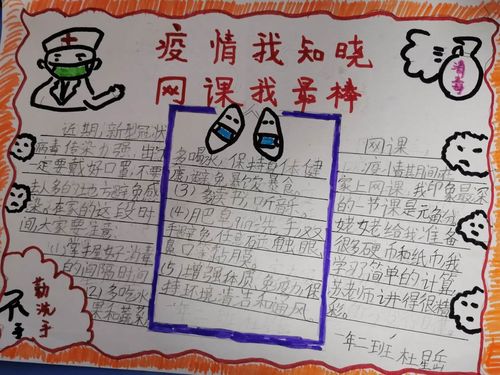 疫情我知晓
网课我最棒
消毒
近期,新型冠状
病毒传染力强,出门
一定要戴好口罩,不要
去人多的地方避免感
染。在家的这段时
间,大家要注意:
(1)掌握好消毒
的间隔时间
(2)多吃水
果和蔬菜
多喝水,保持身体健
康,避免暴饮暴食。
(3)多读书,
(4)用肥皂
手避免任意碰触眼、
鼻、口等
(5)增强体质,免疫力,保
持环境清洁和通风
网课
疫情期间在
家上网课,我印象最深
的一节课是元角分
姥姥给我准备
很多硬币和纸币我
学了简单的计算
苏老师讲得很精
彩。
勤洗手
一年二班 杜星岳